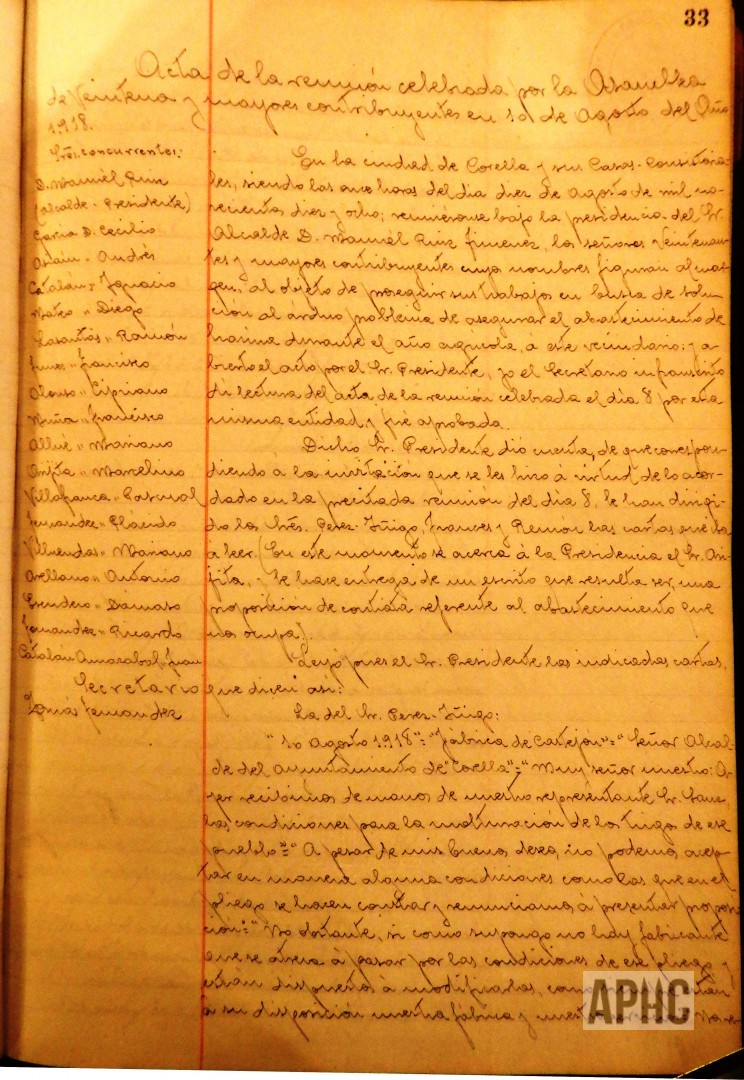 33
Acta de la reunión celebrada por la Asamblea
de Veintena y mayores contribuyentes en 10 de Agosto del Año
1.918.
Sres. concurrentes:
D. Manuel Ruiz
(Alcalde-Presidente)
Garcia D. Cecilio
Asiain - Andrés
Catalán " Ignacio
Mateo " Diego
Lasantas " Ramón
Francisco
Alonso " Cipriano
Francisco
Allué " Mariano
Arijita " Marcelino
Villafranca " Pascual
Fernandez " Plácido
Villuendas " Mariano
Arellano " Antonio
Escudero " Damaso
Fernandez " Ricardo
Catalán Amatriain, Juan
Secretario
Fernandez
En la ciudad de Corella y sus Casas-Consistoria-
les, siendo las once horas del dia diez de Agosto de mil no-
vecientos diez y ocho; reuniéronse bajo la presidencia del Sr.
Alcalde D. Manuel Ruiz Jimenez, los señores Veintenan-
tes y mayores contribuyentes cuyos nombres figuran al mar-
gen, al objeto de proseguir sus trabajos en busca de solu-
ción al árduo problema de asegurar el abastecimiento de
harina durante el año agricola, a este vecindario; y a-
bierto el acto por el Sr. Presidente, yo el Secretario infrascrito
di lectura del acta de la reunión celebrada el dia 8 por esta
misma entidad y fué aprobada.
Dicho Sr. Presidente dió cuenta, de que correspon-
diendo á la invitación que se les hizo á virtud de lo acor-
dado en la precitada reunión del dia 8, le han dirigi-
do los Sres. Perez-Iñigo, Frances y Remon las cartas que va
a leer. (En este momento se acerca á la Presidencia el Sr. Ari-
jita, y le hace entrega de un escrito que resulta ser, una
proposición de contrata referente al abastecimiento que
nos ocupa).
Leyó pues el Sr. Presidente las indicadas cartas,
que dicen asi:
La del Sr. Perez-Iñigo:
"10 Agosto 1.918"="Fábrica de Castejon"="Señor Alcal-
de del Ayuntamiento de "Corella"="Muy señor nuestro: A
ser recibimos de manos de nuestro representante Sr.
las condiciones para la molturación de los trigos de ese
pueblo"="A pesar de mis buenos deseos, no podemos acep-
tar en manera alguna condiciones como las que en el
pliego se hacen constar y renunciamos á presentar proposi-
ción:"="No obstante, si como supongo no hay fabricante
que se atreva á pasar por las condiciones de ese pliego y
están dispuestos á modificarlas,
á su disposición nuestra fábrica y
APHC